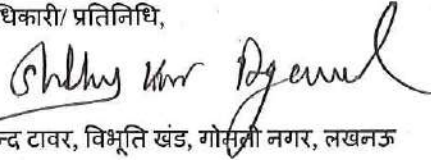 धिकारी/ प्रतिनिधि,
न्द टावर, विभूति खंड, गोमती नगर, लखनऊ